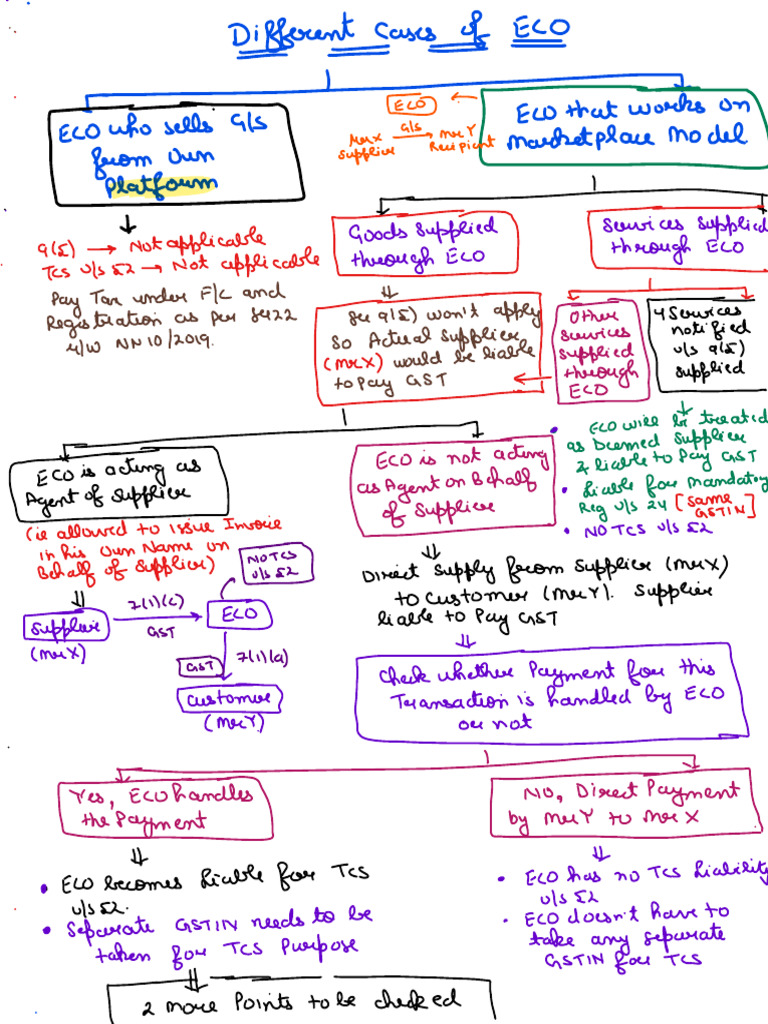 Different Cases of ECO
ECO who sells G/S
from Own
Platform
ECO
Mr X G/S Mr Y
Supplier Recipient
ECO that works on
Marketplace Model
9(5) → Not applicable
TCS u/s 52 → Not applicable
Pay Tax under F/C and
Registration as per Sec 22
r/w NN 10/2019.
Goods Supplied
through ECO
Services Supplied
through ECO
Sec 9(5) won't apply
so Actual Supplier
(Mr X) would be liable
to Pay GST
Other
services
supplied
through
ECO
4 Services
notified
u/s 9(5)
supplied
• ECO will be treated
as Deemed Supplier
& liable to Pay GST
• Liable for mandatory
Reg u/s 24 [same
GSTIN]
• NO TCS u/s 52
ECO is acting as
Agent of Supplier
(ie allowed to issue Invoice
in his Own Name on
Behalf of Supplier)
NO TCS
u/s 52
Supplier
(Mr X)
7(1)(c)
GST
ECO
GST
7(1)(a)
Customer
(Mr Y)
ECO is not acting
as Agent on Behalf
of Supplier
Direct Supply from Supplier (Mr X)
to Customer (Mr Y). Supplier
liable to Pay GST
Check whether Payment for this
Transaction is handled by ECO
or not
Yes, ECO handles
the Payment
• ECO becomes liable for TCS
u/s 52.
• Separate GSTIN needs to be
taken for TCS Purpose
2 more Points to be checked
No, Direct Payment
by Mr Y to Mr X
• ECO has no TCS liability
u/s 52
• ECO doesn't have to
take any separate
GSTIN for TCS